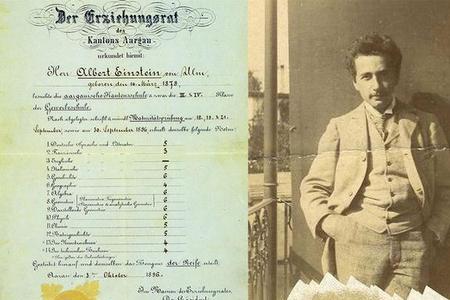 Der Erziehungsrat
des
Kantons Aargau
urkundet hiemit:
Herr Albert Einstein von Ulm,
geboren den 14. März 1879,
besuchte die aargauische Kantonsschule & zwar die III. & IV. Klasse
der Gewerbeschule.
Nach abgelegter schriftl. & mündl. Maturitätsprüfung am 18., 19. & 21.
September, sowie am 30. September 1896, erhielt derselbe folgende Noten:
1. Deutsche Sprache und Litteratur 5
2. Französische 3
3. Englische —
4. Italienische 5
5. Geschichte 6
6. Geographie 4
7. Algebra 6
8. Geometrie 6
9. Darstellende Geometrie 5
10. Physik 6
11. Chemie 5
12. Naturgeschichte 5
13. Im Kunstzeichnen 4
14. Im technischen Zeichnen 4
Gestützt hierauf wird demselben das Zeugnis der Reife erteilt.
Aarau den 3ten Oktober 1896.
Im Namen des Erziehungsrates,
Der Präsident: